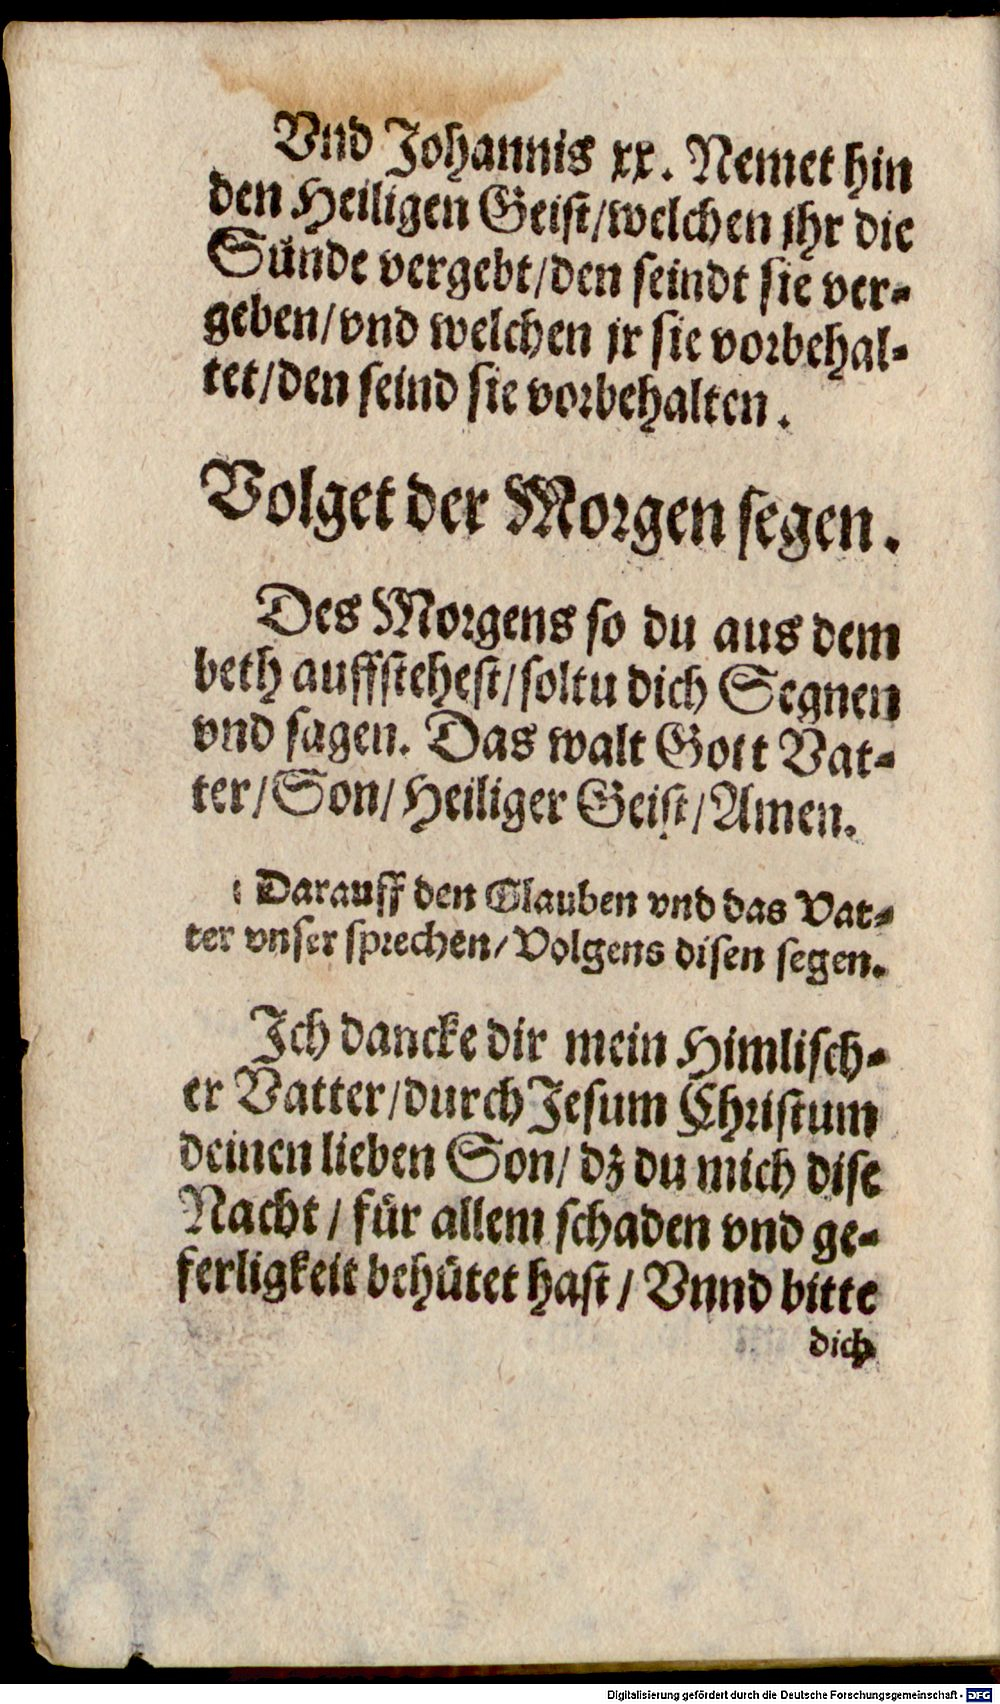 Vnd Johannis xx. Nemet hin
den Heiligen Geist/welchen jhr die
Sünde vergebt/den seindt sie ver-
geben/vnd welchen jr sie vorbehal-
tet/den seind sie vorbehalten.
Volget der Morgen segen.
Des Morgens so du aus dem
beth auffstehest/soltu dich Segnen
vnd sagen. Das walt Gott Vat-
ter/Son/Heiliger Geist/Amen.
Darauff den Glauben vnd das Vat-
ter vnser sprechen/Volgens disen segen.
Ich dancke dir mein Himlisch-
er Vatter/durch Jesum Christum
deinen lieben Son/dz du mich dise
Nacht/für allem schaden vnd ge-
ferligkeit behütet hast/Vnnd bitte
dich
Digitalisierung gefördert durch die Deutsche Forschungsgemeinschaft - DFG